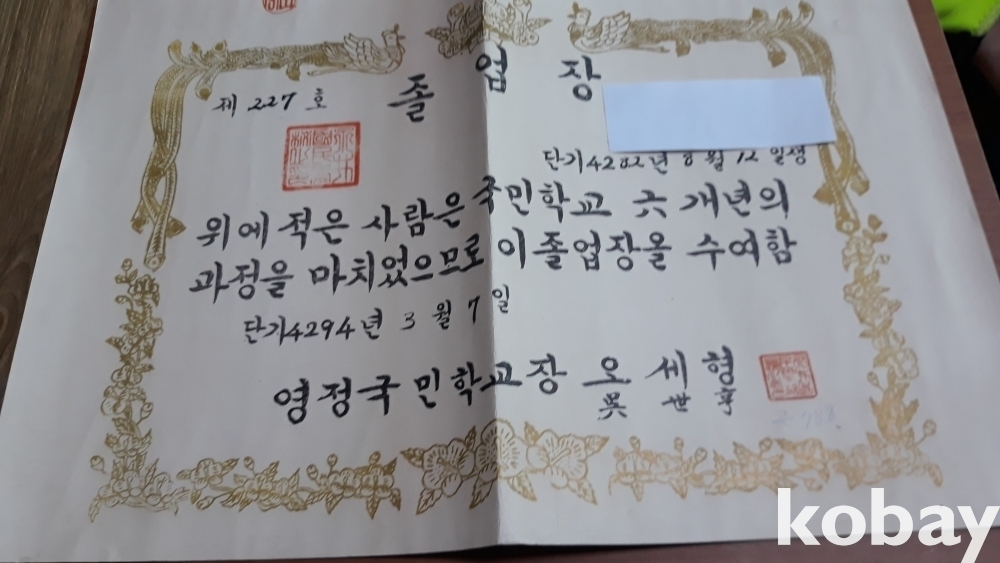 제 227 호
졸 업 장
단기4282년 8월 12일생
위에 적은 사람은 국민학교 六 개년의
과정을 마치었으므로 이 졸업장을 수여함
단기4294년 3월 7일
영정국민학교장 오세형
吳世亨
kobay